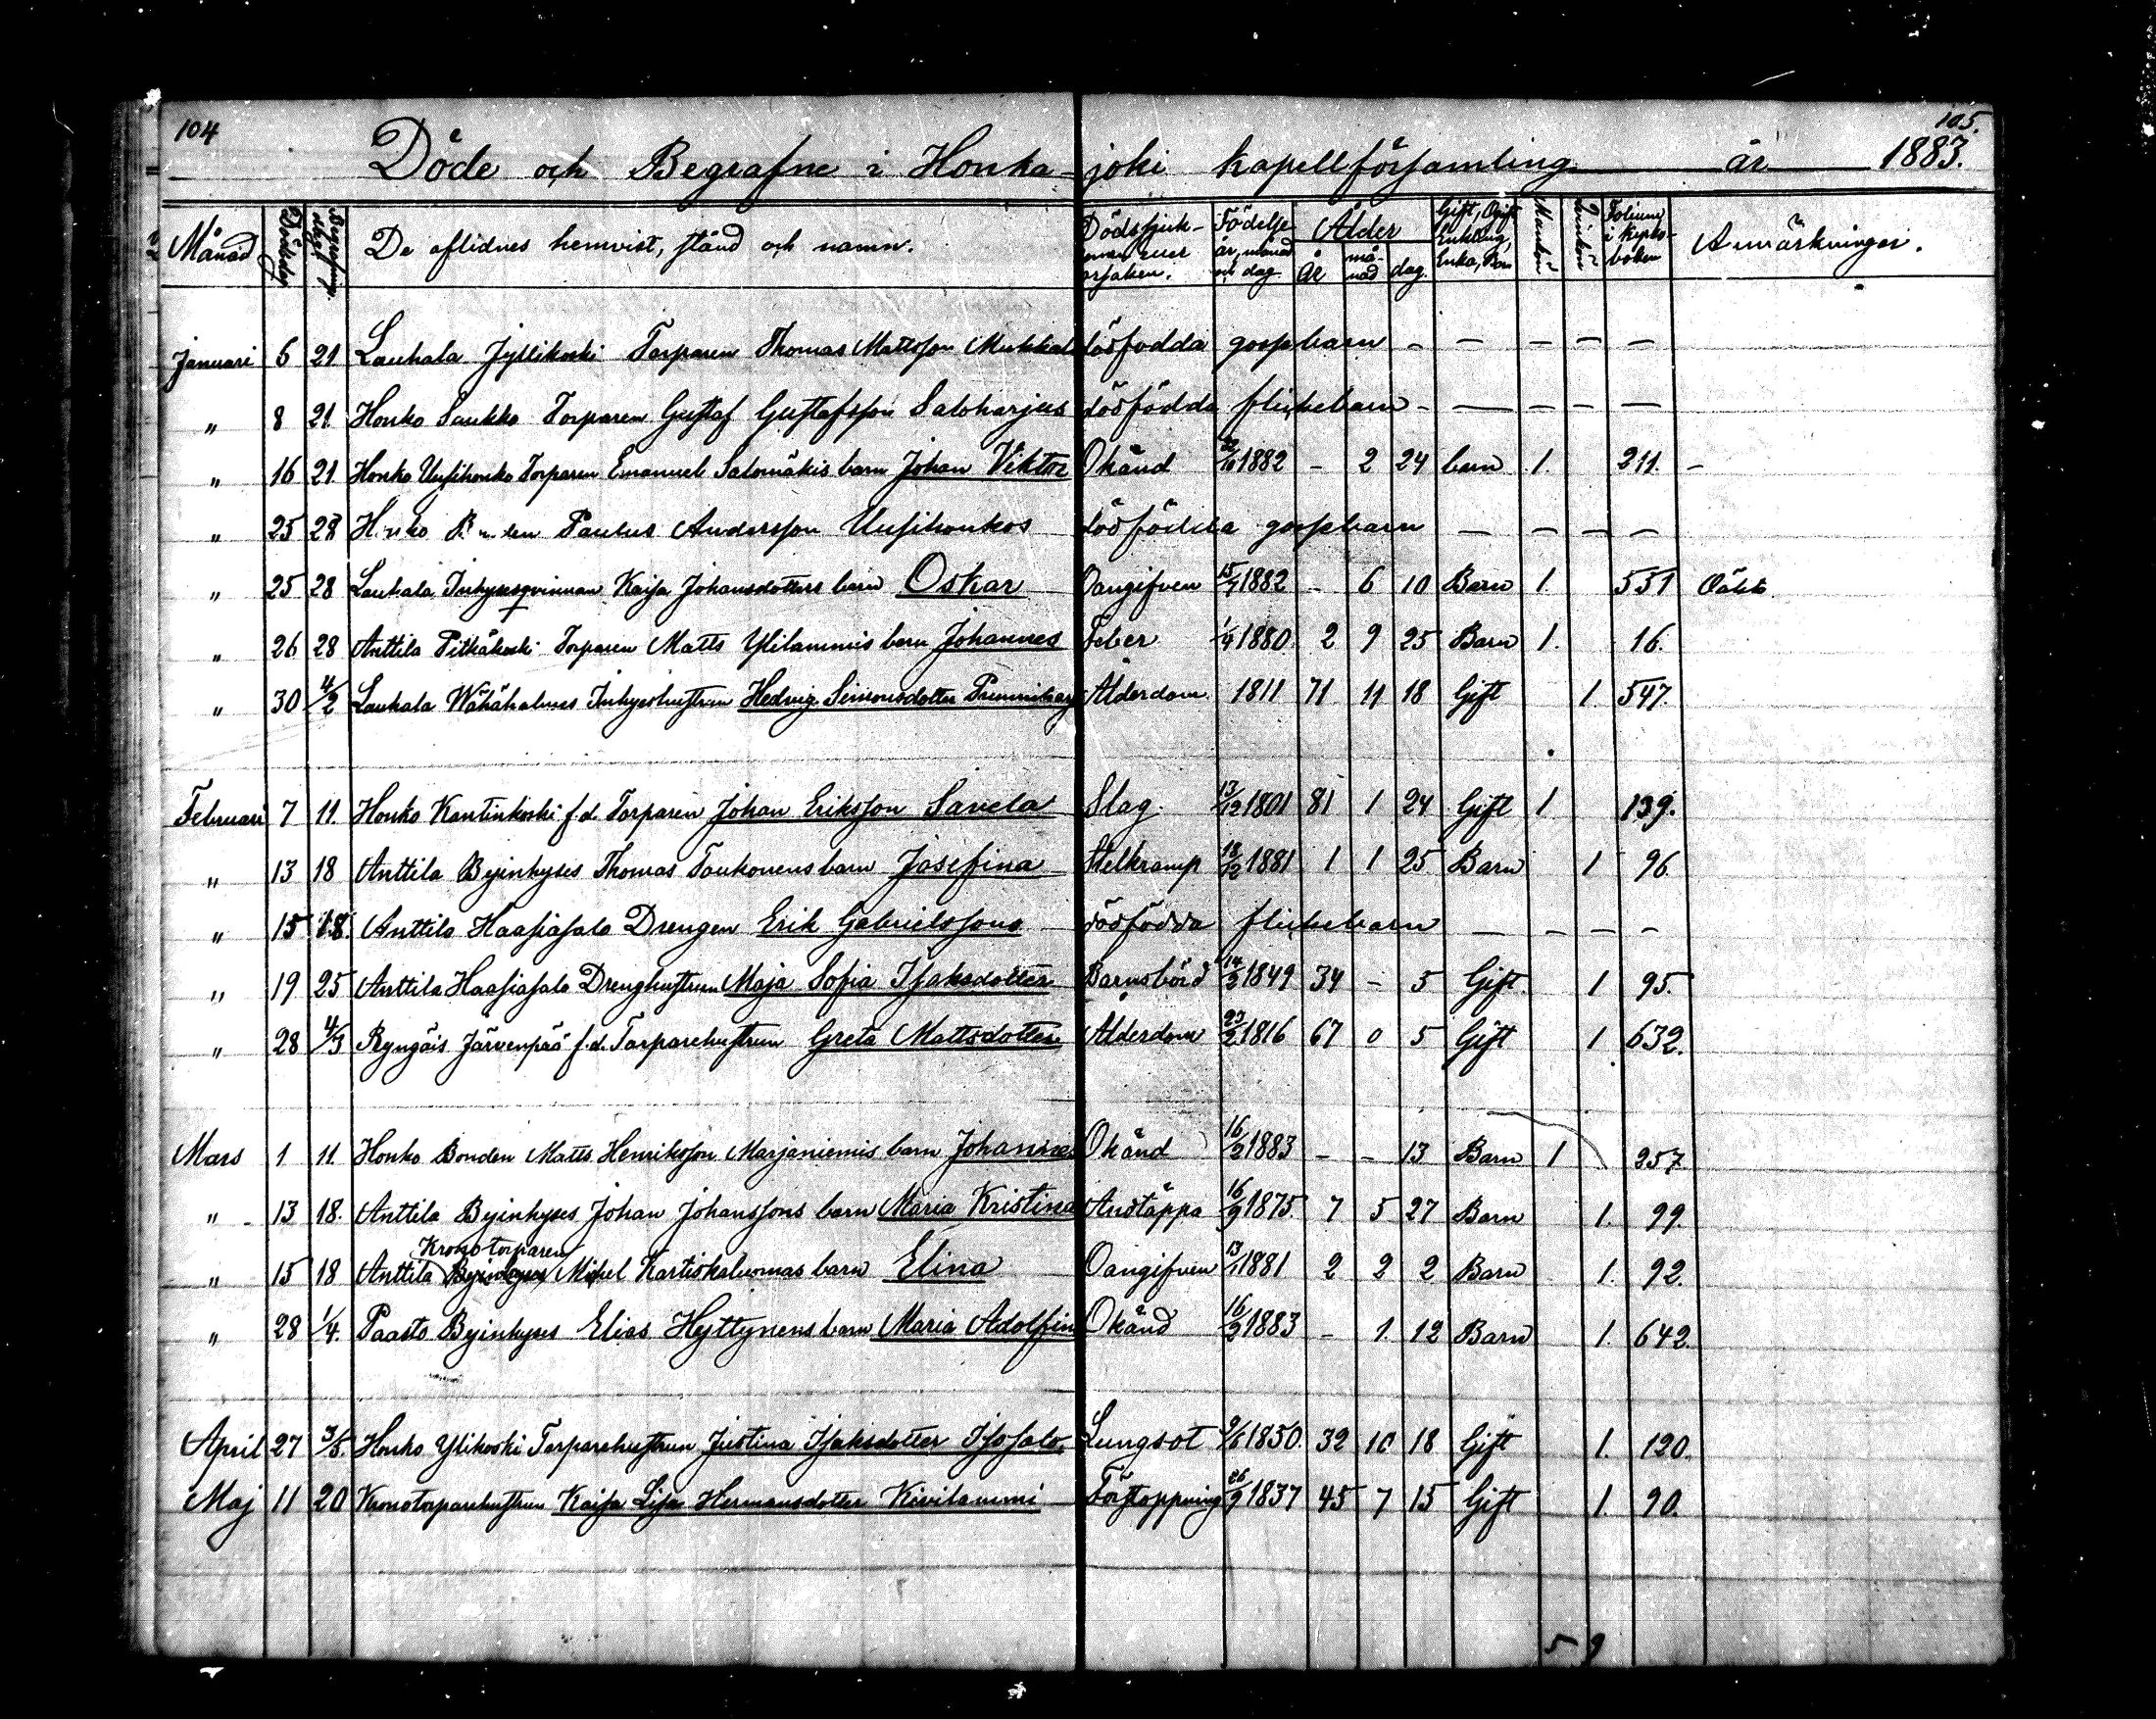 104
105.
Döde och Begrafne i Honkajoki kapellförsamling år 1883.
Månad Dödsdag Begrafnings dag De aflidnes hemvist, stånd och namn. Dödssjukdomen eller orsaken. Födelse år, månad och dag Ålder år månad dag. Gift, Ogift Enkling, Enka, Barn Mankön Qvinkön Folium i kyrkoboken Anmärkningar.
Januari 6 21 Lauhala Jyllikoski Torparen Thomas Mattsson dödfödda gossebarn – – – – –
" 8 21 Honko Saukko Torparen Gustaf Gustafsson Saloharjus dödfödda flickebarn – – – – –
" 16 21 Honko Uusihonko Torparen Emanuel Salomäkis barn Johan Viktor Okänd 22/10 1882 – 2 24 barn 1. 211. –
" 25 28 Honko Bonden Paulus Andersson Uusihonkos dödfödda gossebarn – – – –
" 25 28 Lauhala Inhysesqvinnan Kajsa Johansdotters barn Oskar Oangifven 15/7 1882 – 6 10 Barn 1. 531 Oäkta
" 26 28 Anttila Pitkäkoski Torparen Matts Ylilammis barn Johannes Feber 1/4 1880. 2 9 25 Barn 1. 16.
" 30 4/2 Lauhala Inhyseshustrun Hedvig Simonsdotter Ålderdom 1811 71 11 18 Gift 1. 547.
Februari 7 11. Honko Kantinkoski f.d. Torparen Johan Eriksson Savela Slag 13/12 1801 81 1 24 Gift 1 139.
" 13 18 Anttila Byinhyses Thomas Taukonens barn Josefina Stelkramp 18/12 1881 1 1 25 Barn 1 96.
" 15 18. Anttila Haasiasalo Drengen Erik Gabrielssons dödfödda flickebarn – – – –
" 19 25 Anttila Haasiasalo Drenghustrun Maja Sofia Isaksdotter Barnsbörd 14/2 1849 34 – 5 Gift 1 95.
" 28 4/3 Ryngäis Järvenpää f.d. Torparehustrun Greta Mattsdotter Ålderdom 23/2 1816 67 0 5 Gift 1 632.
Mars 1 11 Honko Bonden Matts Henriksson Marjaniemis barn Johannes Okänd 16/2 1883 – – 13 Barn 1 257
" 13 18. Anttila Byinhyses Johan Johanssons barn Maria Kristina Andtäppa 16/9 1875. 7 5 27 Barn 1. 99.
Kronotorparen
" 15 18 Anttila Byinhyses Mikel Kartiskaluomas barn Elina Oangifven 13/1 1881 2 2 2 Barn 1. 92.
" 28 1/4. Paasto Byinhyses Elias Hyttynens barn Maria Adolfina Okänd 16/2 1883 – 1. 12 Barn 1. 642.
April 27 3/5. Honko Ylikoski Torparehustrun Justina Isaksdotter Isosalo Lungsot 9/6 1850. 32 10 18 Gift 1. 120.
Maj 11 20 Kronotorparehustrun Kajsa Lisa Hermansdotter Kivilammi Förstoppning 26/9 1837 45 7 15 Gift 1. 90.
5 9